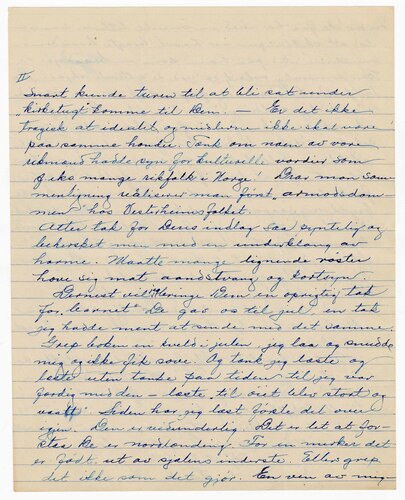 II
Snart kunde turen til at bli sat under
"kirketugt" komme til Dem. — Er det ikke
tragisk at idealet og midlerne ikke skal være
paa samme hender. Tænk om noen av vore
rikmænd hadde syn for kulturelle værdier som
f.eks mange rikfolk i Norge! Drar man sam-
menligning realiserer man først "armodsdom
men" hos Vesterheimsfolket.
Atter tak for Deres indlæg saa syntelig og
behersket men med en underklang av
harme. Maatte mange lignende røster
hæve sig mot aandstvang og kortsyn.
Dernest vil jeg bringe Dem en oprigtig tak
for "barnet" De gav os til jul en tak
jeg hadde ment at sende med det samme.
Grep boken en kveld i julen jeg laa og
mig og ikke fik sove. Og tænk jeg læste og
læste uten tanke paa tiden til jeg var
færdig med den — læste til øiet blev stort og
vaatt. Siden har jeg læst det over
igjen. Den er vidunderlig. Det er let at for-
staa De er nordlænding. For en merker det
er født ut av sjælens inderste. Ellers grep
det ikke som det gjør. En ven av mig